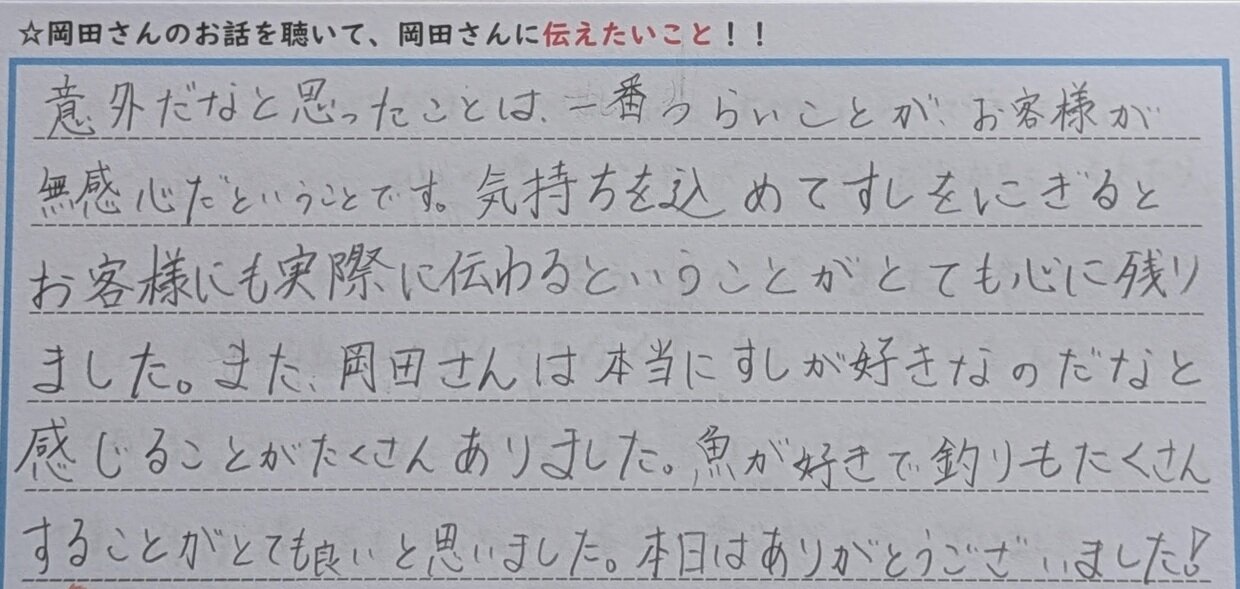 ☆岡田さんのお話を聴いて、岡田さんに伝えたいこと！！
意外だなと思ったことは、一番つらいことが、お客様が
無感心だということです。気持ちを込めてすしをにぎると
お客様にも実際に伝わるということがとても心に残り
ました。また、岡田さんは本当にすしが好きなのだなと
感じることがたくさんありました。魚が好きで釣りもたくさん
することがとても良いと思いました。本日はありがとうございました!